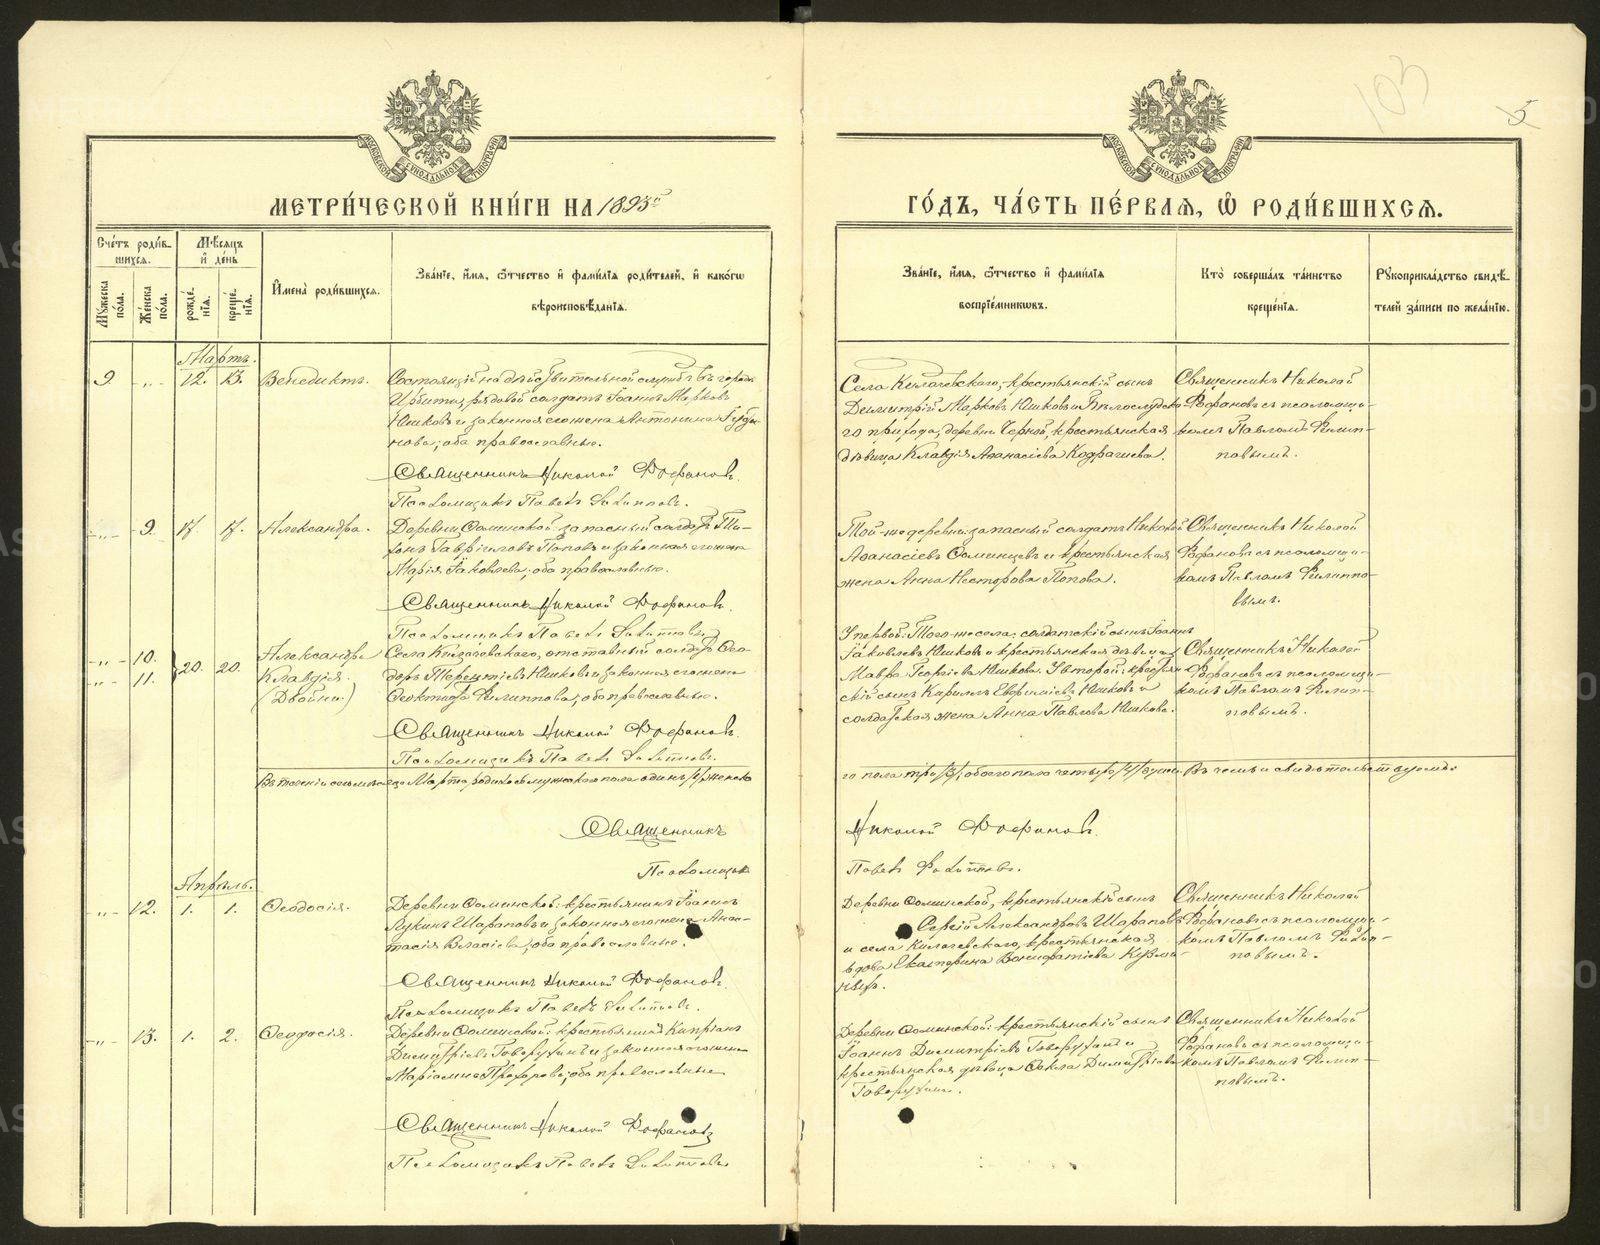 103
5
МОСКОВСКОЙ СѴНОДАЛЬНОЙ ТИПОГРАФІИ
МОСКОВСКОЙ СѴНОДАЛЬНОЙ ТИПОГРАФІИ
МЕТРИ́ЧЕСКОЙ КНИ́ГИ НА 1893й
ГО́ДЪ, ЧА́СТЬ ПЕ́РВАЯ, Ѡ РОДИ́ВШИХСЯ.
Сче́тъ роди́в-
шихся.
Мꙋ́жеска по́ла.
Же́нска по́ла.
Мѣ́сяцъ
и де́нь
рожде́-нїя.
креще́-нїя.
И҆мена̀ роди́вшихся.
Зва́нїе, и҆́мя, ѻ҆́тчество и҆ фами́лїя роди́телей, и҆ како́гѡ
вѣроисповѣ́данїя.
Зва́нїе, и҆́мя, ѻ҆́тчество и҆ фами́лїя
воспрїе́мникѡвъ.
Кто̀ соверша́лъ та́инство
креще́нїя.
Рꙋкоприкла́дство свидѣ́-
телей за́писи по жела́нїю.
Мартъ.
9. -„- 12. 13. Венедиктъ.
Состоящій на дѣйствительной службѣ въ городѣ
Ирбити, рядовой солдатъ Іоаннъ Марковъ
Юшковъ и законная его жена Антонина
нова, оба православные.
Священникъ Николай Фофановъ.
Псаломщикъ Павелъ Филипповъ.
Села Килачевскаго, крестьянскій сынъ
Димитрій Марковъ Юшковъ и Бѣлослудска-
го прихода, деревни Черной, крестьянская
дѣвица Клавдія Аѳанасіева Кодрачиева.
Священникъ Николай
Фофановъ съ псаломщи-
комъ Павломъ Филип-
повымъ.
-„- 9. 17. 17. Александра.
Деревни Ѳоминской: запасный солдатъ Ти-
хонъ Гавріиловъ Поповъ и законная его жена
Марія Іаковлева, оба православные.
Священникъ Николай Фофановъ.
Псаломщикъ Павелъ Филипповъ
Той-же деревни, запасный солдатъ Николай
Аѳанасіевъ Ѳоминцевъ и крестьянская
жена Анна Несторова Попова.
Священникъ Николай
Фофановъ съ псаломщи-
комъ Павломъ Филиппо-
вымъ.
-„- 10.
-„- 11.
20. 20.
Александра
Клавдія.
(Двойни.)
Села Килачевскаго, отставный солдатъ Ѳео-
доръ Терентіевъ Юшковъ и законная его жена
Ѳеоктиста Филиппова, оба православные.
Священникъ Николай Фофановъ.
Псаломщикъ Павелъ Филипповъ.
У первой: Того-же села, солдатскій сынъ Іоаннъ
Іаковлевъ Юшковъ и крестьянская дѣвица
Мавра Георгіева Юшкова. У второй: крестьян-
скій сынъ Кириллъ Евфиміевъ Юшковъ и
солдатская жена Анна Павлова Юшкова.
Священникъ Николай
Фофановъ съ псаломщи-
комъ Павломъ Филип-
повымъ.
Въ теченіи сего мѣсяца Марта родилось мужскаго пола одинъ /1/, женска-
го пола три /3/, обоего пола четыре /4/ души. Въ чемъ и свидѣтельствуемъ:
Священникъ
Николай Фофановъ.
Псаломщикъ
Павелъ Филипповъ.
Апрѣль.
-„- 12. 1. 1. Ѳеодосія.
Деревни Ѳоминской: крестьянинъ Іоаннъ
Лукинъ Шараповъ и законная его жена Анас-
тасія Власіева, оба православные.
Священникъ Николай Фофановъ.
Псаломщикъ Павелъ Филипповъ.
Деревни Ѳоминской, крестьянскій сынъ
Сергій Александровъ Шараповъ
и села Килачевскаго, крестьянская
вдова Екатерина Вонифатіева Кузми-
ныхъ.
Священникъ Николай
Фофановъ съ псаломщи-
комъ Павломъ Филип-
повымъ.
-„- 13. 1. 2. Ѳеодосія.
Деревни Ѳоминской: крестьянинъ Капріанъ
Димитріевъ Говорухинъ и законная его жена
Маріамна Прохорова, оба православные
Священникъ Николай Фофановъ
Псаломщикъ Павелъ Филипповъ
Деревни Ѳоминской: крестьянскій сынъ
Іоаннъ Димитріевъ Говорухинъ и
крестьянская дѣвица Ѳекла Димитріева
Говорухина.
Священникъ Николай
Фофановъ съ псаломщи-
комъ Павломъ Филип-
повымъ.